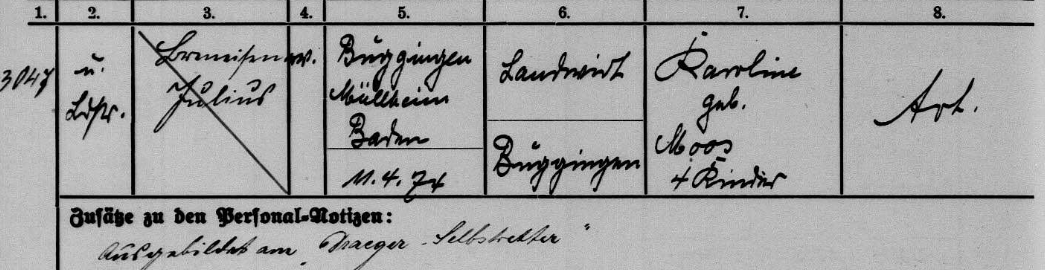 1. 2. 3. 4. 5. 6. 7. 8.
3047
u.
Ldstr.
Bremeisen
Julius
ev.
Buggingen
Müllheim
Baden
11.4.74
Landwirt
Buggingen
Karoline
geb.
Moos
4 Kinder
Art.
Zusätze zu den Personal-Notizen:
Ausgebildet am „Draeger-Selbstretter“